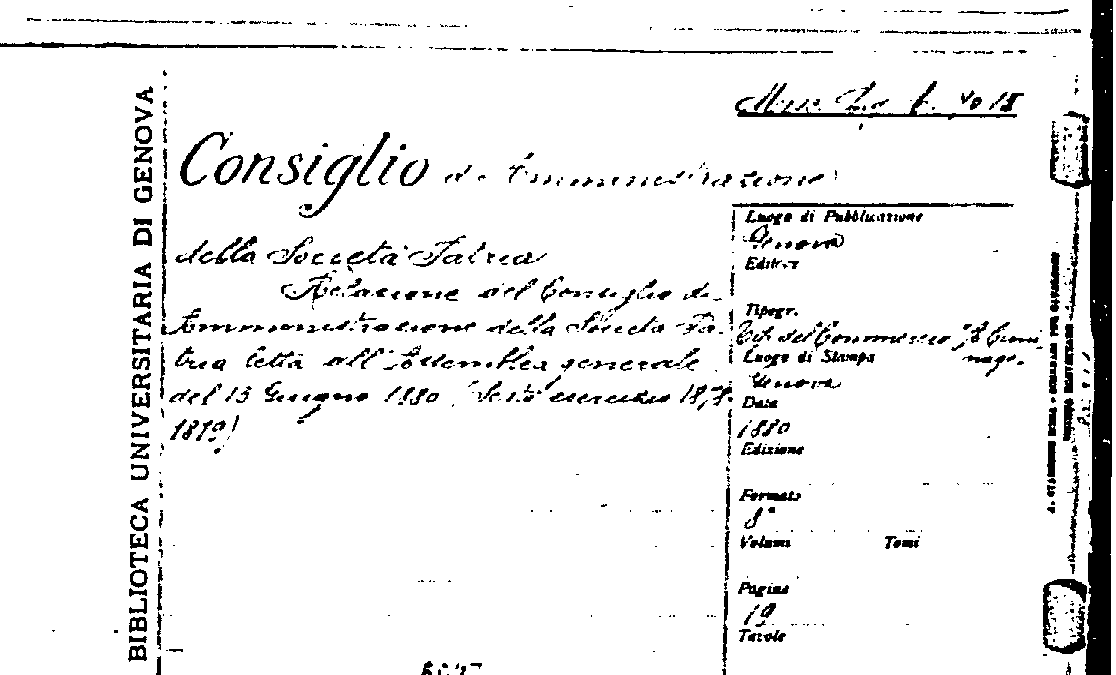 BIBLIOTECA UNIVERSITARIA DI GENOVA
Misc.
Consiglio di Amministrazione
della Società Patria
Relazione del Consiglio di
Amministrazione della Società Pa-
tria letta all'Assemblea generale
del 13 Giugno 1880 (Sesto esercizio 1878-
1879)
Luogo di Pubblicazione
Genova
Editore
Tipogr.
Tip. del Commercio
Luogo di Stampa
Genova
Data
1880
Edizione
Formato
8°
Volumi Tomi
Pagine
19
Tavole